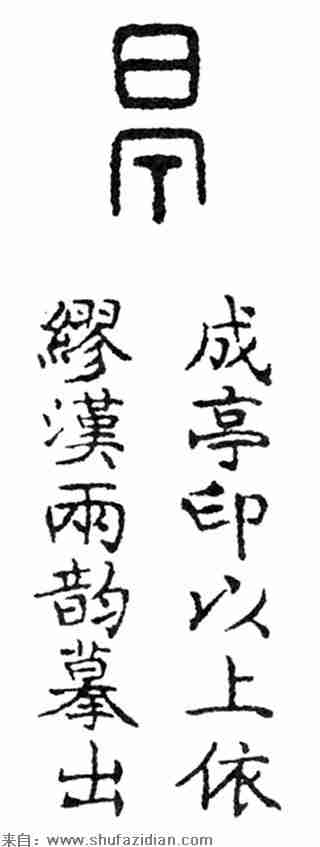 亭
成亭印以上依
繆漢兩韵摹出
来自：www.shufazidian.com